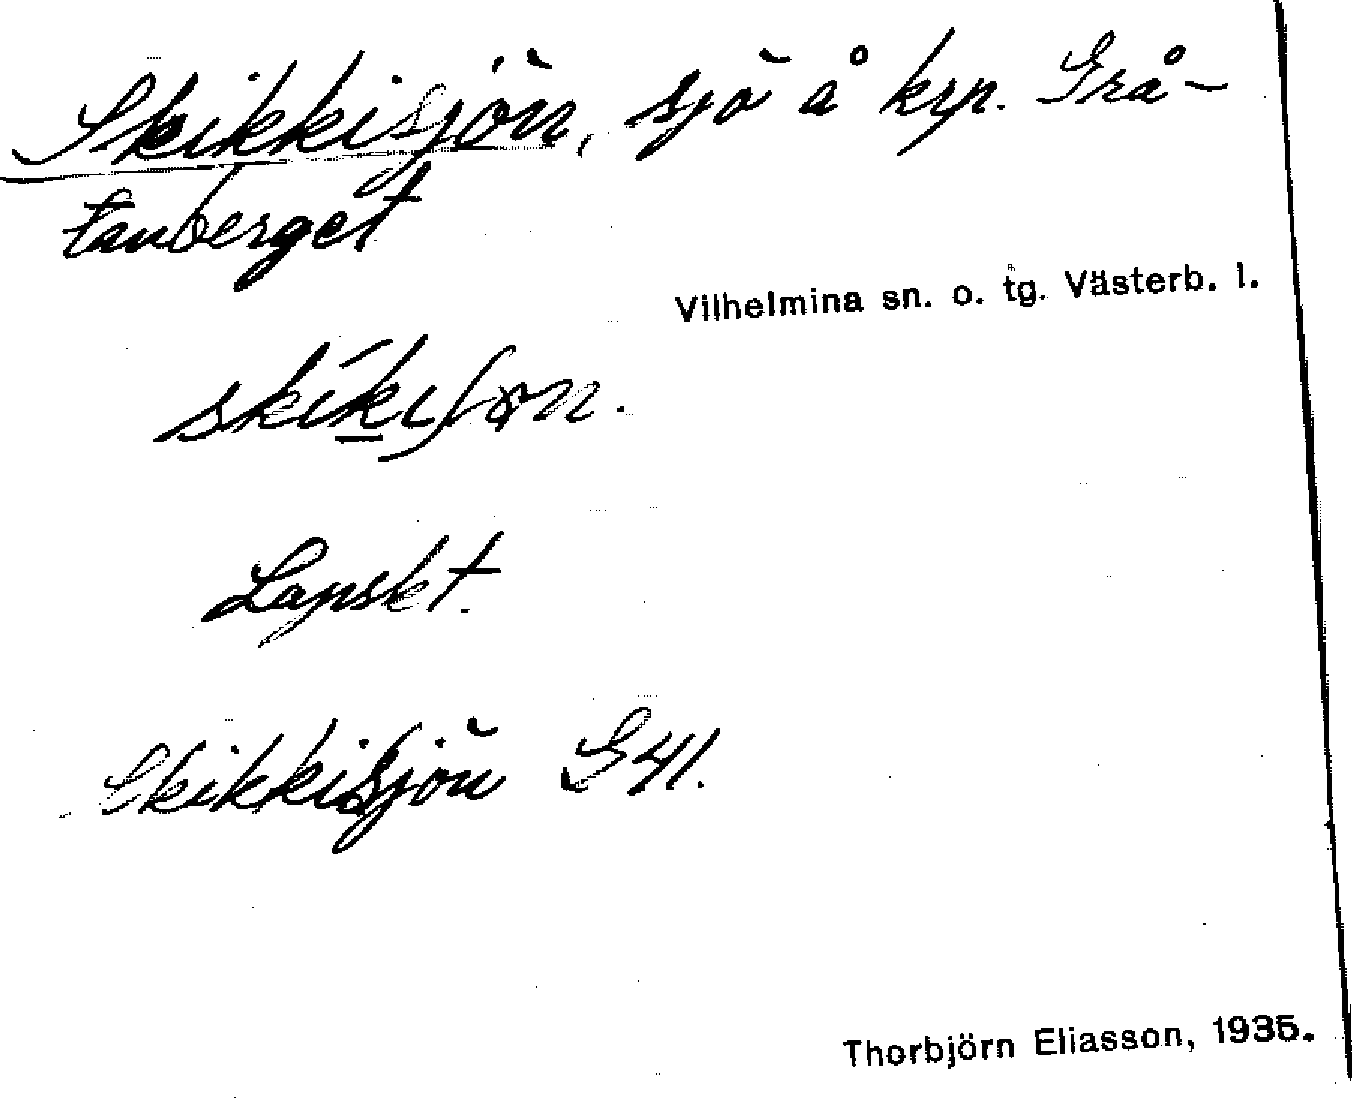 Skikkisjön, sjö å krp. Grå-
tanberget
Vilhelmina sn. o. tg. Västerb. l.
Lapskt.
Skikkisjön G 41.
Thorbjörn Eliasson, 1935.